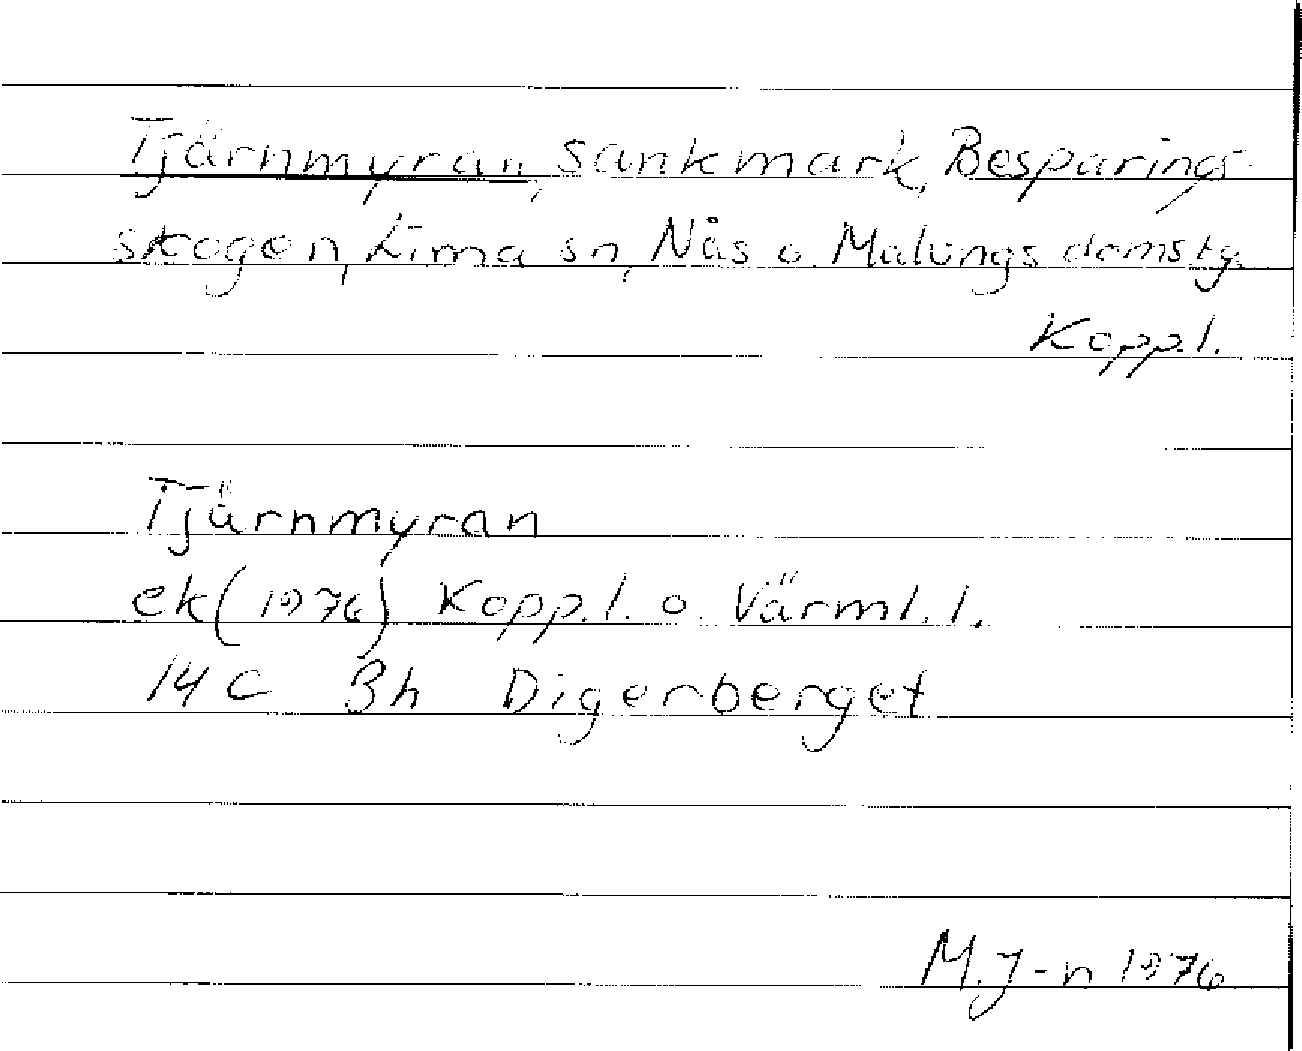 Tjärnmyran, sankmark, Besparings-
skogen, Lima sn, Nås o. Malungs domstg.
Koppl.
Tjärnmyran
ek (1976) Kopp.l. o. Värml.l.
14 C 3h Digerberget
M.J-n 1976